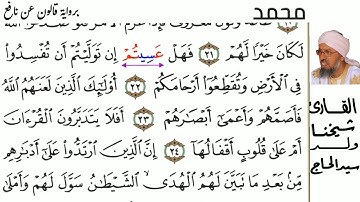 محمد
برواية قالون عن نافع
لَكَانَ خَيْرًا لَهُمْ ٢١ فَهَلْ عَسِيتُمْ إِن تَوَلَّيْتُمْ أَن تُفْسِدُوا
فِي الْأَرْضِ وَتُقَطِّعُوا أَرْحَامَكُمْ ٢٢ أُوْلَٰٓئِكَ الَّذِينَ لَعَنَهُمُ اللَّهُ
فَأَصَمَّهُمْ وَأَعْمَىٰ أَبْصَارَهُمْ ٢٣ أَفَلَا يَتَدَبَّرُونَ الْقُرْءَانَ
أَمْ عَلَىٰ قُلُوبٍ أَقْفَالُهَا ٢٤ إِنَّ الَّذِينَ ارْتَدُّوا عَلَىٰ أَدْبَارِهِم
مِّنۢ بَعْدِ مَا تَبَيَّنَ لَهُمُ الْهُدَى الشَّيْطَانُ سَوَّلَ لَهُمْ وَأَمْلَىٰ
القارئ
شيخنا
ولد
سيد الحاج